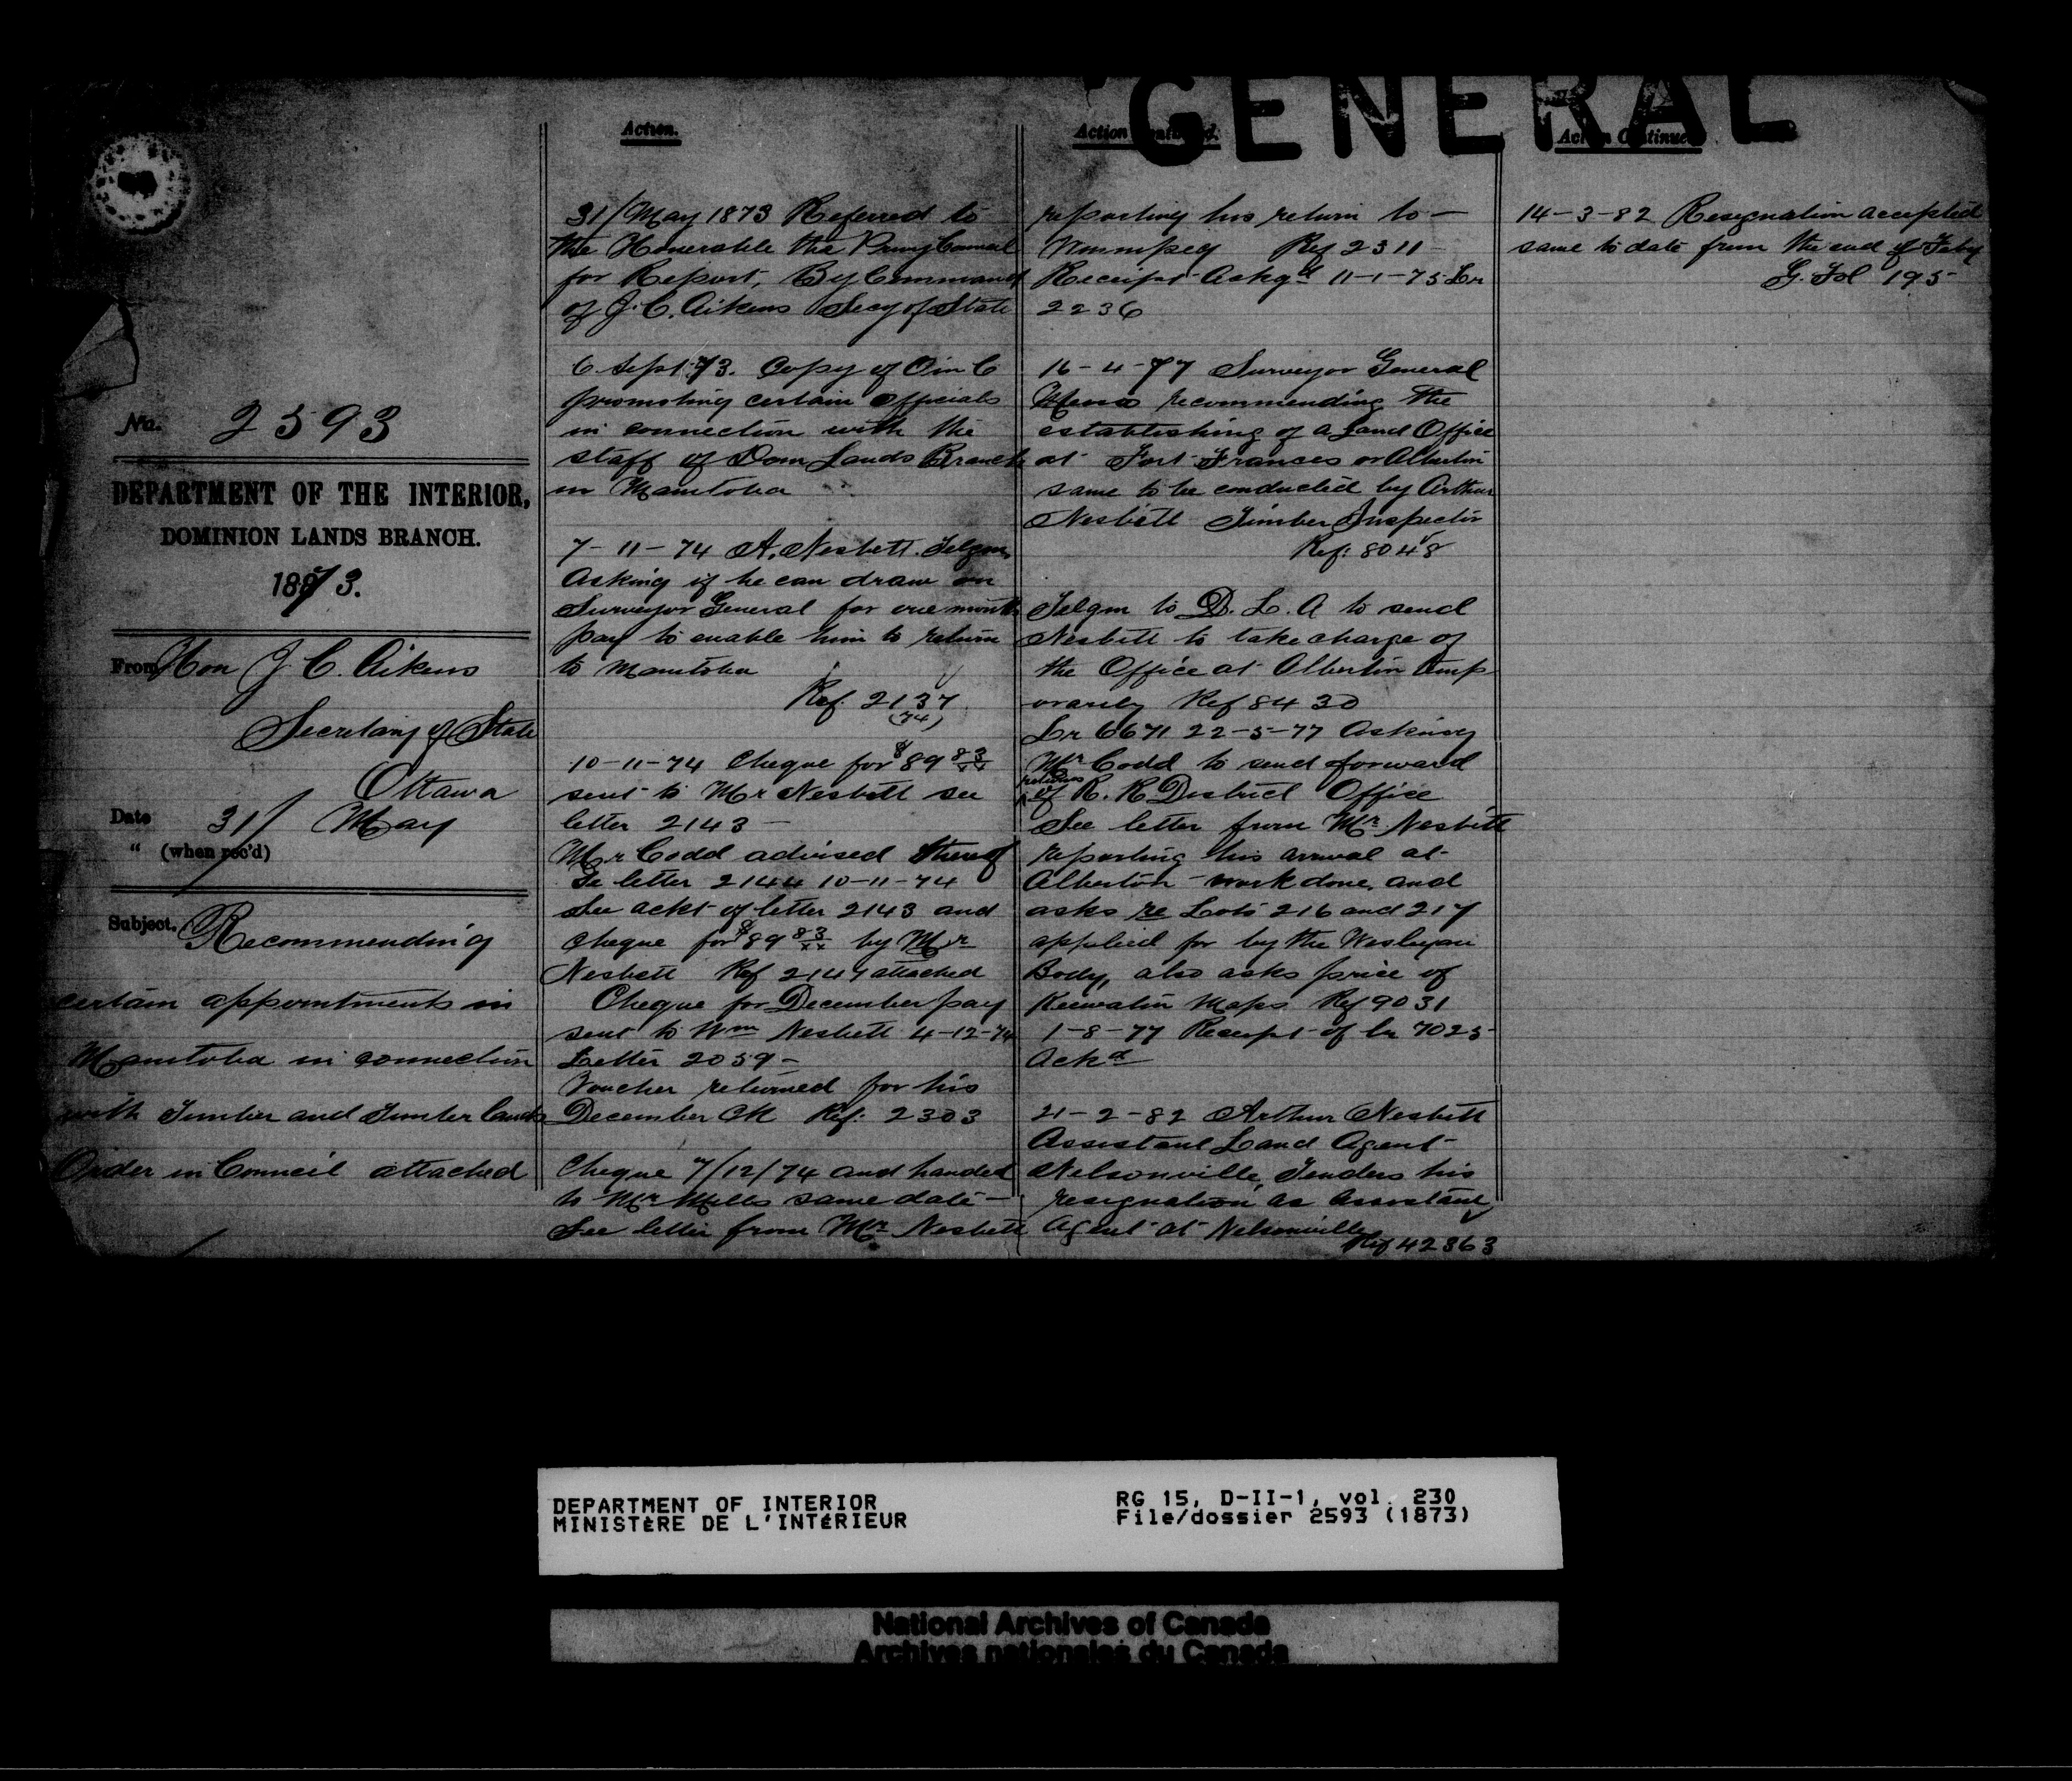 GENERAL
No. 2593
DEPARTMENT OF THE INTERIOR,
DOMINION LANDS BRANCH.
1873.
From Hon J. C. Aikens
Secretary of State
Ottawa
Date 31/ May
" (when rec'd)
Subject. Recommending
certain appointments in
Manitoba in connection
with Timber and Timber lands
Order in Council attached
Action.
31/May 1873 Referred to
the Honerable the Privy Council
for Report, By Command
of J. C. Aikens Secy of State
6 Sept 73. Copy of O in C
promoting certain officials
in connection with the
staff of Dom Lands Branch
in Manitoba
7-11-74 A. Nesbitt. Telgm
Asking if he can draw on
Surveyor General for one month
pay to enable him to return
to Manitoba
Ref. 2137
(74)
10-11-74 Cheque for $89 83/xx
sent to Mr Nesbitt see
letter 2143 -
Mr Codd advised thereof
Se letter 2144 10-11-74
See ackt of letter 2143 and
cheque for $89 83/xx by Mr
Nesbitt Ref 2147 attached
Cheque for December pay
sent to Wm Nesbitt 4-12-74
Letter 2059 -
Voucher returned for his
December Ref: 2303
Cheque 7/12/74 and handed
to Mr Mills same date -
See letter from Mr Nesbitt
Action Continued.
reporting his return to -
Winnipeg Ref 2311 -
Receipt Ackgd 11-1-75 Lr
2236
16-4-77 Surveyor General
Memo recommending the
establishing of a Land Office
at Fort Frances or Alberton
same to be conducted by Arthur
Nesbitt Timber Inspector
Ref: 8048
Telgm to D. L. A to send
Nesbitt to take charge of
the Office at Alberton temp
orarily Ref 8430
Lr 6671 22-5-77 Asking
Mr Codd to send forward
returns
of R. R District Office
See letter from Mr. Nesbitt
reporting his arrival at
Alberton - work done, and
asks re Lots 216 and 217
applied for by the Wesleyan
Body, also asks price of
Keewatin Maps Ref 9031
1-8-77 Receipt of lr 7025
Ackd
21-2-82 Arthur Nesbitt
Assistant Land Agent
Nelsonville, Tenders his
resignation as Assistant
Agent at Nelsonville
Ref 42363
Action Continued
14-3-82 Resignation accepted
same to date from the end of Feby
G. Fol 195
DEPARTMENT OF INTERIOR
MINISTÈRE DE L'INTÉRIEUR
RG 15, D-II-1, vol. 230
File/dossier 2593 (1873)
National Archives of Canada
Archives nationales du Canada